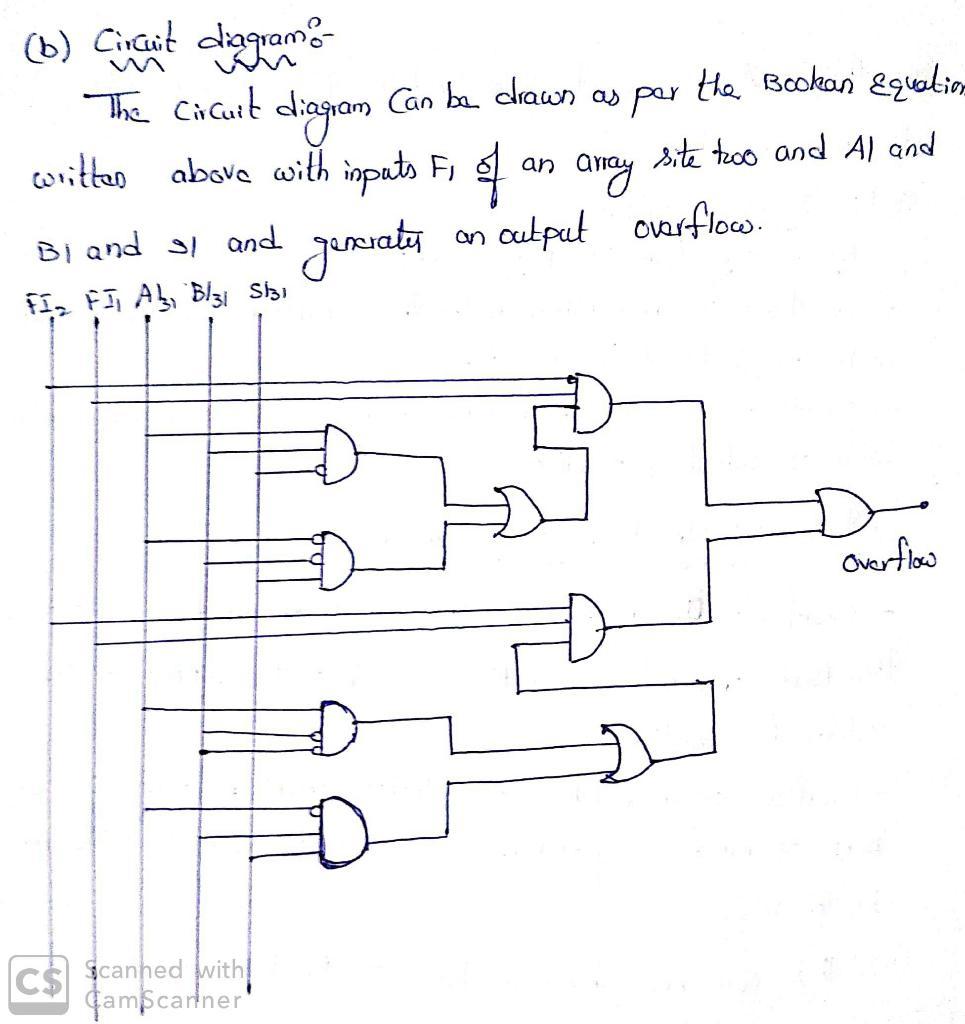 (b) Circuit diagram:-
The Circuit diagram Can be drawn as par the Bookan Equation
written above with inputs F, of an array site too and Al and
BI and 31 and generates an output overflow.
FI2 FI1 A/31 B/31 S/31
Overflow
CS Scanned with
CamScanner